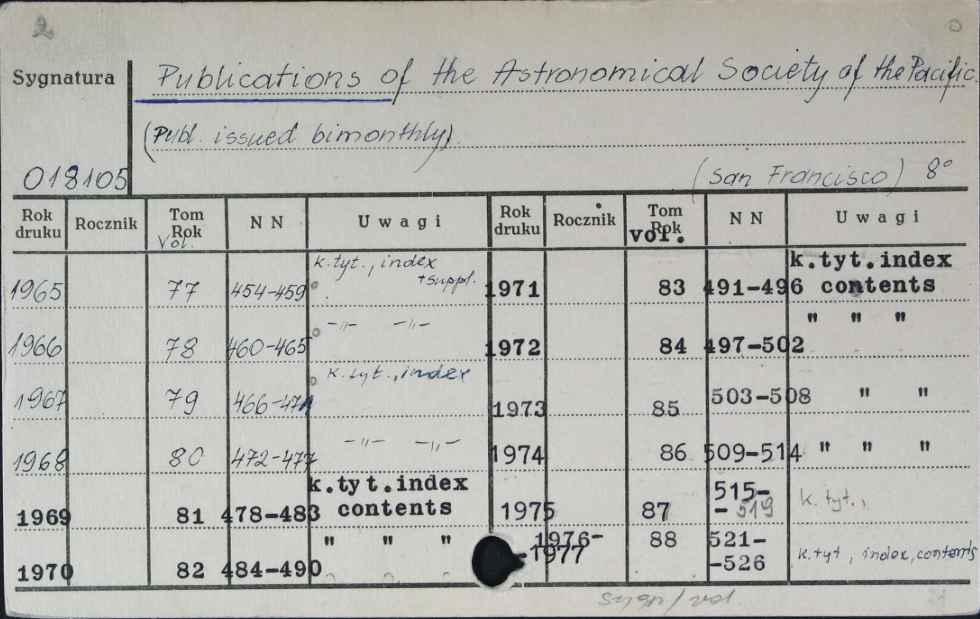 2
Sygnatura Publications of the Astronomical Society of the Pacific
(Publ. issued bimonthly)
018105 (San Francisco) 8°
Rok druku Rocznik Tom Rok Vol. N N Uwagi Rok druku Rocznik Tom Rok vol. N N Uwagi
1965 77 454-459 k.tyt., index + suppl. 1971 83 491-496 k.tyt.index contents
1966 78 460-465 -"- -"- 1972 84 497-502 " " "
1967 79 466-471 k.tyt.,index 1973 85 503-508 " "
1968 80 472-477 -"- -"- 1974 86 509-514 " " "
1969 81 478-483 k.tyt.index contents 1975 87 515- - 519 k.tyt.,
1970 82 484-490 " " " 1976- -1977 88 521- -526 k.tyt, index, contents